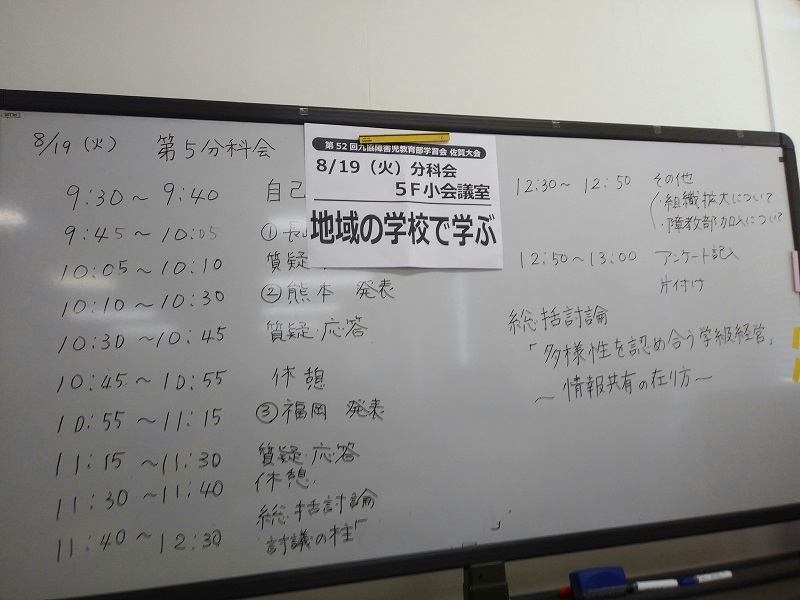 8/19（火） 第5分科会
9:30～9:40 自己
9:45～10:05 ①長
10:05～10:10 質疑
10:10～10:30 ②熊本 発表
10:30～10:45 質疑・応答
10:45～10:55 休憩
10:55～11:15 ③福岡 発表
11:15～11:30 質疑・応答
11:30～11:40 休憩
11:40～12:30 総括討論
討議の柱「
第52回九協障害児教育部学習会 佐賀大会
8/19（火）分科会
5F小会議室
地域の学校で学ぶ
12:30～12:50 その他
・組織拡大について
・障教部加入について
12:50～13:00 アンケート記入
片付け
総括討論
「多様性を認め合う学級経営」
～情報共有の在り方～